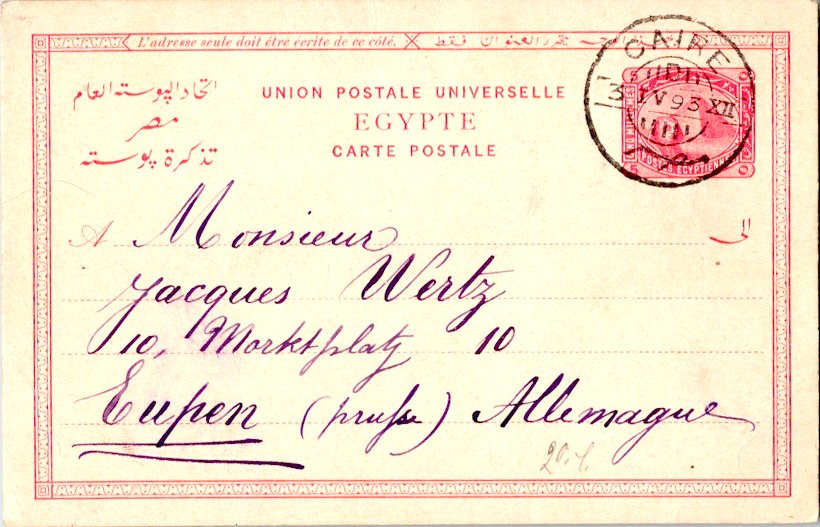 L'adresse seule doit être écrite de ce côté.
فقط
اتحاد البوسته العام
مصر
تذكرة بوسته
UNION POSTALE UNIVERSELLE
EGYPTE
CARTE POSTALE
CAIRE
3 IV 93 XII
POSTES EGYPTIENNES
A Monsieur
الى
Jacques Wertz
10, Marktplatz 10
Eupen (prusse) Allemagne